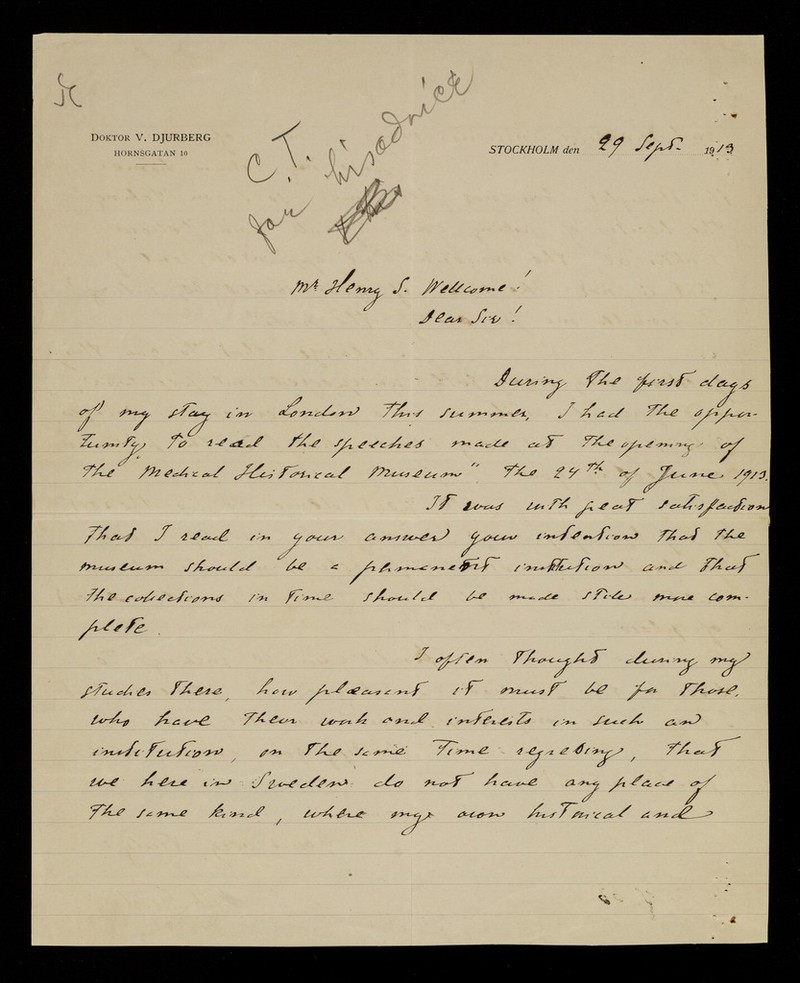 C. T.
for his advice
DOKTOR V. DJURBERG
HORNSGATAN 10
STOCKHOLM den 29 Sept. 1913
Mr Henry S. Wellcome!
Dear Sir!
During the first days
of my stay in London this summer, I had the oppor-
tunity to read the speeches made at the opening of
the "Medical Historical Museum" the 24th of June 1913.
It was with great satisfaction
that I read in your answer your intention that the
museum should be a permanent institution and that
the collections in time should be made still more com-
plete.
I often thought during my
studies there, how pleasant it must be for those,
who have their work and interests in such an
institution, on the same time regreting, that
we here in Sweden do not have any place of
the same kind, where my own historical and